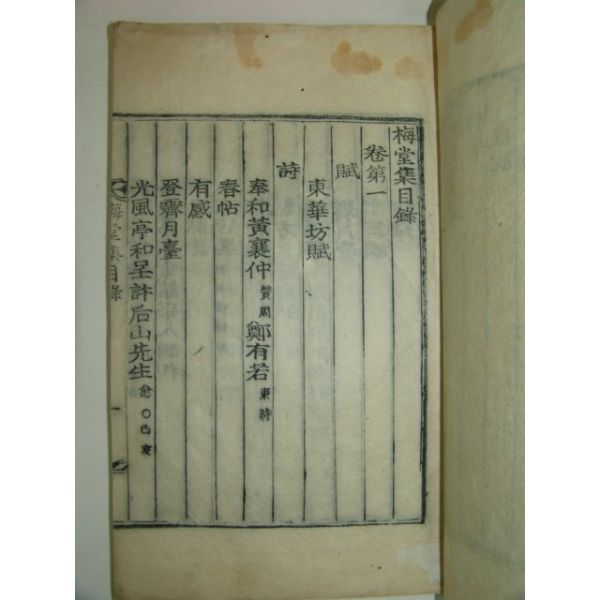 梅堂集目錄
卷第一
賦
東華坊賦
詩
奉和黃襄仲贊周鄭有若東時
春帖
有感
登霽月臺
光風亭和呈許后山先生愈○己亥
梅堂集目錄 一